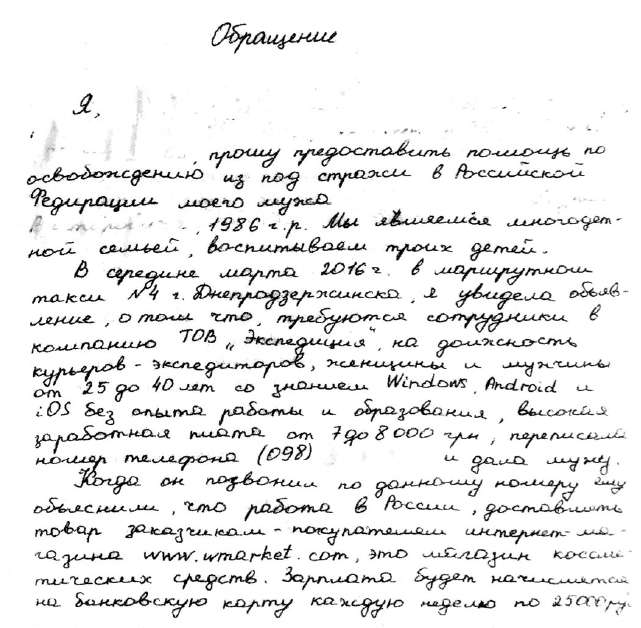 Обращение
Я,
, прошу предоставить помощь по
освобождению из под стражи в Российской
Федирации моего мужа
, 1986 г.р. Мы являемся многодет-
ной семьей, воспитываем троих детей.
В середине марта 2016 г. в маршрутном
такси №4 г. Днепродзержинска, я увидела объяв-
ление, о том что, требуются сотрудники в
компанию ТОВ "Экспедиция", на должность
курьеров-экспедиторов, женщины и мужчины
от 25 до 40 лет со знанием Windows, Android и
iOS без опыта работы и образования, высокая
заработная плата от 7 до 8000 грн, переписала
номер телефона (098) и дала мужу.
Когда он позвонил по данному номеру ему
объяснили, что работа в России, доставлять
товар заказчикам-покупателям интернет-ма-
газина www.wmarket.com, это магазин космет-
тических средств. Зарплата будет начисляться
на банковскую карту каждую неделю по 25000 руб